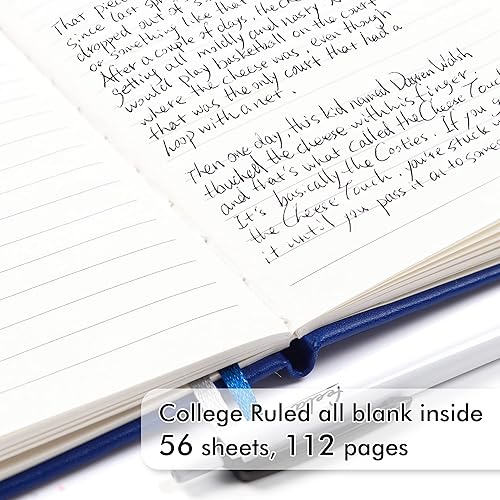 That piece
since last spr
dropped out of s
or something like that
After a couple of days, the ch
getting all moldy and nasty. N
would play basketball on the court
where the cheese was, even though
that was the only court that had a
hoop with a net.
Then one day, this kid named Darren Walsh
touched the cheese with his finger,
and that's what called the Cheese Touch
It's basically the Cooties. If you g
the Cheese Touch, you're stuck w
it until you pass it on to someo
College Ruled all blank inside
56 sheets, 112 pages